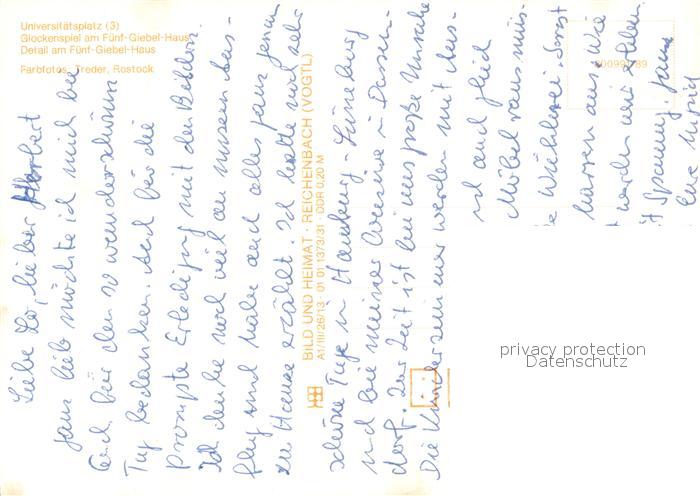 Universitätsplatz (3)
Glockenspiel am Fünf-Giebel-Haus
Detail am Fünf-Giebel-Haus
Farbfotos: Treder, Rostock
BILD UND HEIMAT · REICHENBACH (VOGTL)
A1/III/26/13 · 01 01 1373/31 · DDR 0,20 M
Liebe Lo, lieber Herbert
ganz lieb möchte ich mich bei
Euch für den so wunderschönen
Tag bedanken. Auch für die
prompte Erledigung mit den Bildern.
Ich denke noch viel an unseren Aus-
flug und habe auch alles ganz genau
zu Hause erzählt. Ich hatte noch sehr
schöne Tage in Hamburg - Lüneburg
und bei meiner Cousine in
dorf. Zur Zeit ist bei uns große Unruhe
Die Kinderzimmer werden mit
und auch gleich
Möbel raus
Wühlerei. Sonst
aus. Wie
werden
Spannung. Ganz
Eure
privacy protection
Datenschutz